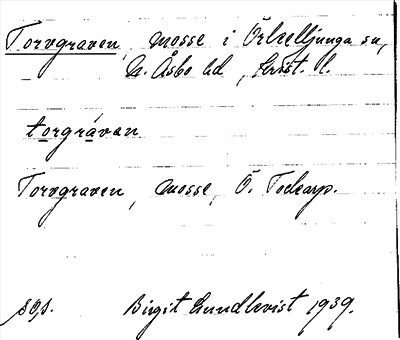 Torvgraven, mosse i Örkelljunga sn,
N. Åsbo hd, Krist. l.
torgrávan
Torvgraven, mosse, Ö. Tockarp.
Birgit Lundkvist 1939.